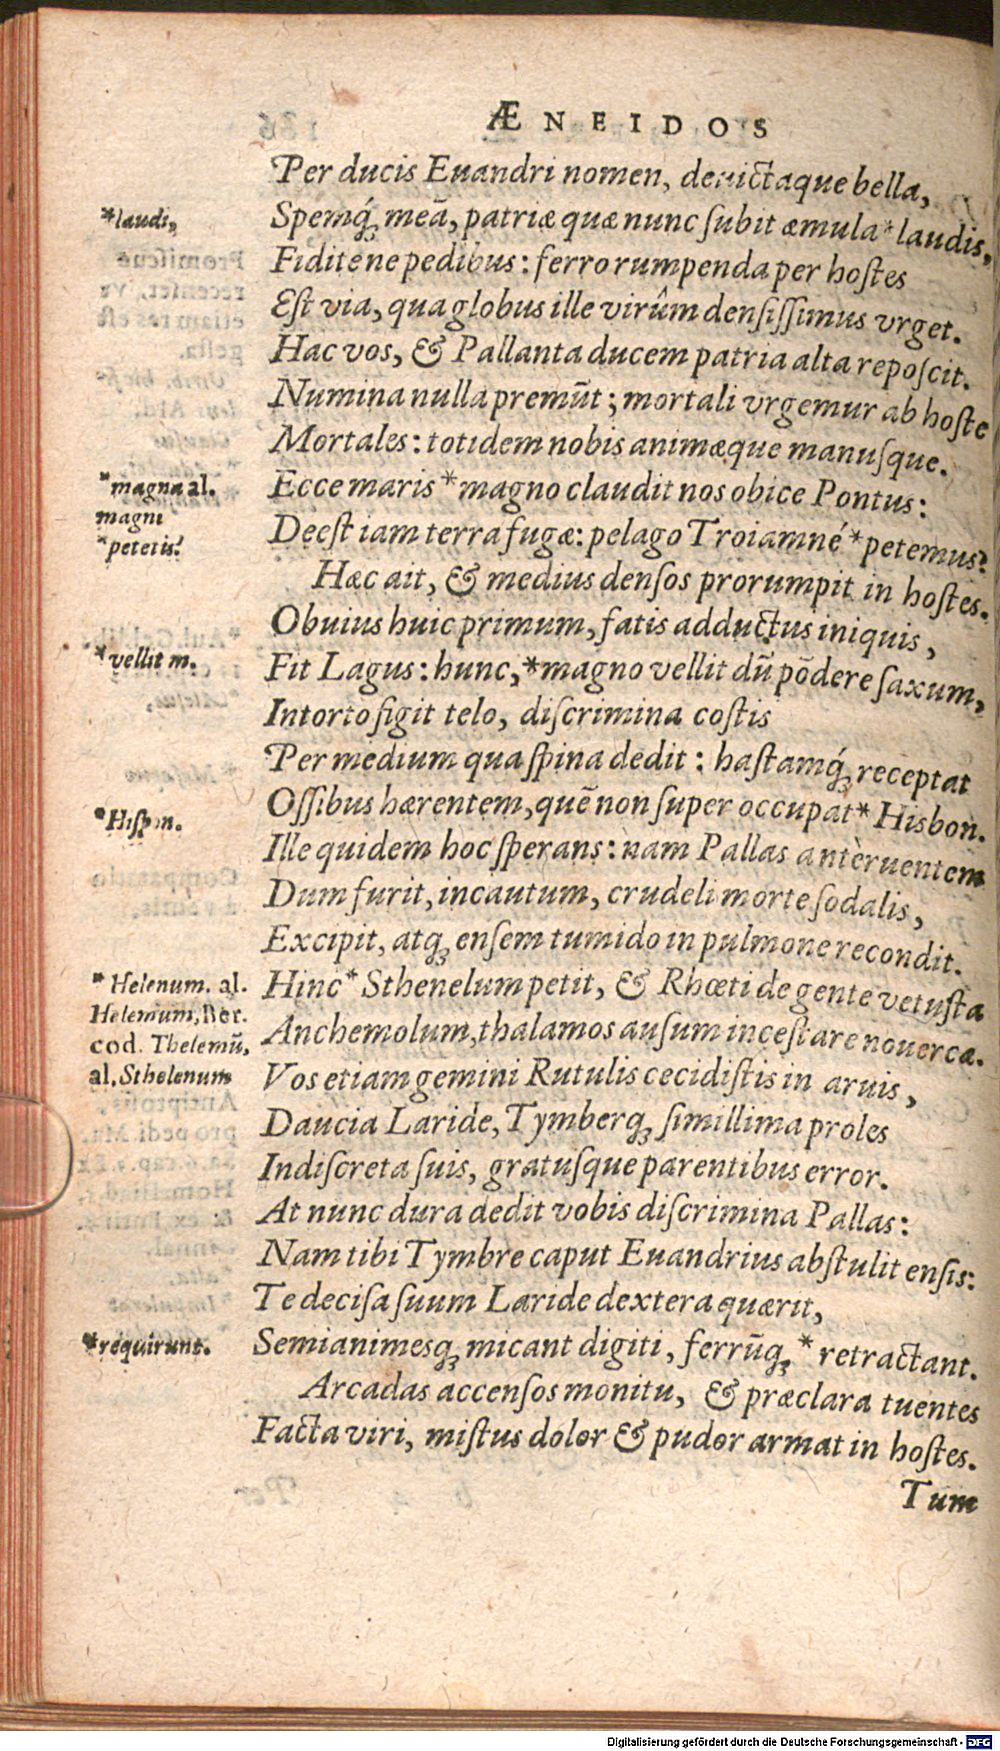 ÆNEIDOS
Per ducis Euandri nomen, deuictaque bella,
*laudi,
Spemq́; meā, patriæ quæ nunc ſubit æmula *laudis,
Fidite ne pedibus: ferro rumpenda per hoſtes
Eſt via, qua globus ille virûm denſiſſimus vrget.
Hac vos, & Pallanta ducem patria alta repoſcit.
Numina nulla premūt; mortali vrgemur ab hoſte
Mortales: totidem nobis animæque manuſque.
*magna al.
magni
Ecce maris *magno claudit nos obice Pontus:
*petetis?
Deeſt iam terra fugæ: pelago Troiamné *petemus?
Hæc ait, & medius denſos prorumpit in hoſtes.
Obuius huic primum, fatis adductus iniquis,
*vellit m.
Fit Lagus: hunc, *magno vellit dū pōdere ſaxum,
Intorto figit telo, diſcrimina coſtis
Per medium qua ſpina dedit: haſtamq́; receptat
*Hiſpon.
Oſſibus hærentem, quē non ſuper occupat *Hisbon.
Ille quidem hoc ſperans: nam Pallas antè ruentem
Dum furit, incautum, crudeli morte ſodalis,
Excipit, atq; enſem tumido in pulmone recondit.
*Helenum. al.
Helemum, Ber.
cod. Thelemū,
al. Sthelenum
Hinc *Sthenelum petit, & Rhœti de gente vetuſta
Anchemolum, thalamos auſum inceſtare nouercæ.
Vos etiam gemini Rutulis cecidiſtis in aruis,
Daucia Laride, Tymberq; ſimillima proles
Indiſcreta ſuis, gratuſque parentibus error.
At nunc dura dedit vobis diſcrimina Pallas:
Nam tibi Tymbre caput Euandrius abſtulit enſis:
Te deciſa ſuum Laride dextera quærit,
*requirunt.
Semianimesq; micant digiti, ferrūq; *retractant.
Arcadas accenſos monitu, & præclara tuentes
Facta viri, miſtus dolor & pudor armat in hoſtes.
Tum
Digitalisierung gefördert durch die Deutsche Forschungsgemeinschaft - DFG